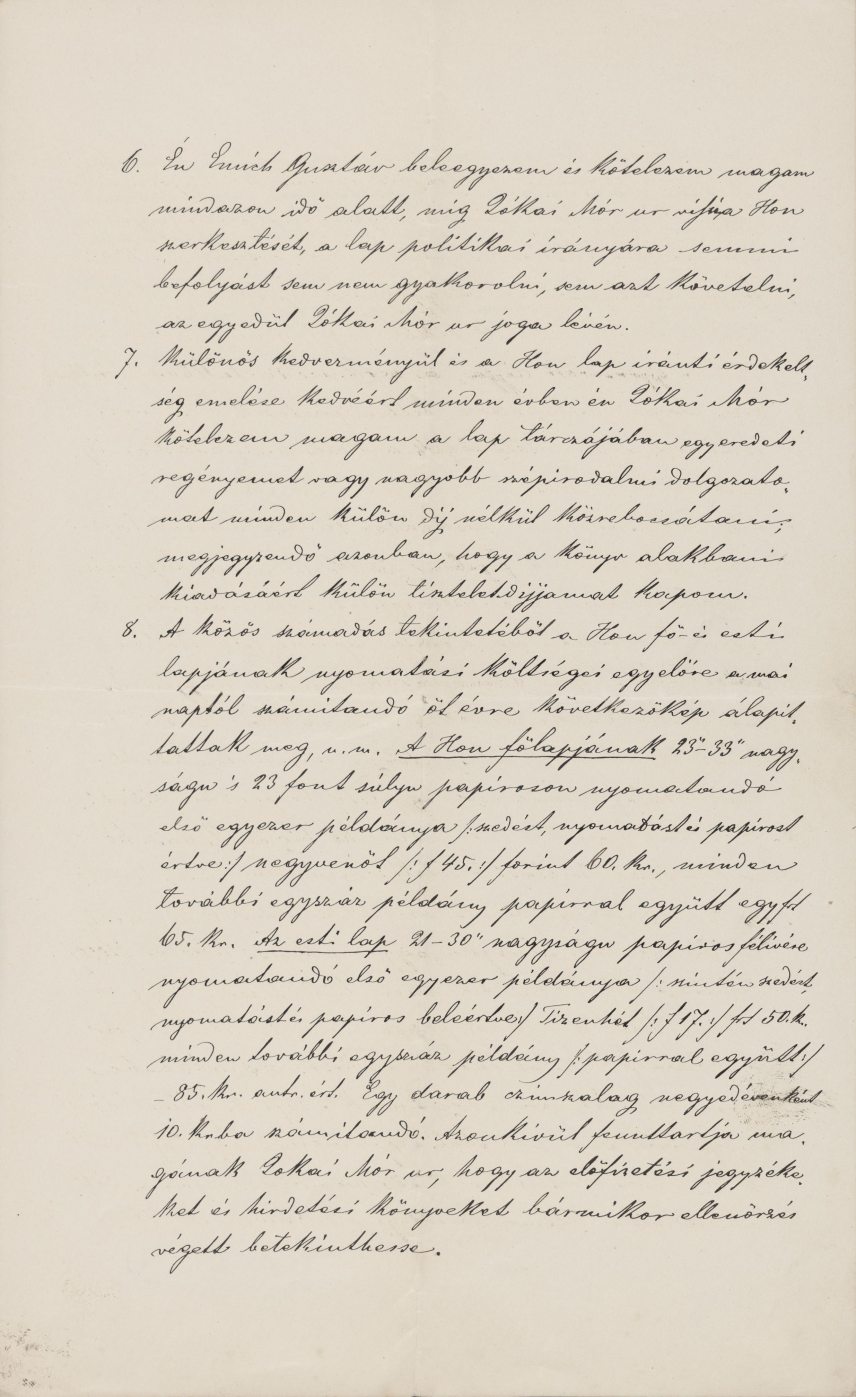 6. Én Emich Gusztáv beleegyezem és kötelezem magam
mindazon idő alatt, míg Jókai Mór ur viszi a Hon
szerkesztését, a lap politikai irányára semmi
befolyást sem nem gyakorolni, sem azt követelni,
az egyedül Jókai Mór ur joga lévén.
7. Különös kedvezményül és a Hon lap iránti érdekelt-
ség emelése kedvéért minden évben én Jókai Mór
kötelezem magam a lap tárczájában egy eredeti
regényemet vagy nagyobb szépirodalmi dolgozato-
mat minden külön díj nélkül közrebocsátani;
megjegyzendő azonban, hogy a könyv alakbani
kiadásáért külön tiszteletdijjamat kapom.
8. A közös számadás tekintetéből a Hon fő- és esti
lapjának nyomatási költségei egyelőre a mai
naptól számitandó öt évre következőkép álapit-
tattak meg, u. m. A Hon főlapjának 23"-33" nagy-
ságu 's 23 font súlyu papiroson nyomatandó
első egyezer példánya /:szedést, nyomadást és papirost
értve:/ negyvenöt /: f 45. :/ forint 60. kr., minden
további egyszáz példány papirral együtt egy frt
65. kr. Az esti lap 21-30" nagyságu papiros félívére
nyomatandó első egyezer példánya /: szintén szedést,
nyomtatást és papiros beleértve:/ Tizenhét /: f 17. :/ frt 50. k.
minden további egyszáz példány /: papirral együtt :/
- 85. kr. autr. ért. Egy darab czimszalag negyedévenként
10. krba számitandó. Azonkívül fenntartja ma-
gának Jokai Mór ur, hogy az előfizetési jegyzéke-
ket és hirdetési könyveket bármikor ellenőrzés
végett betekinthesse.